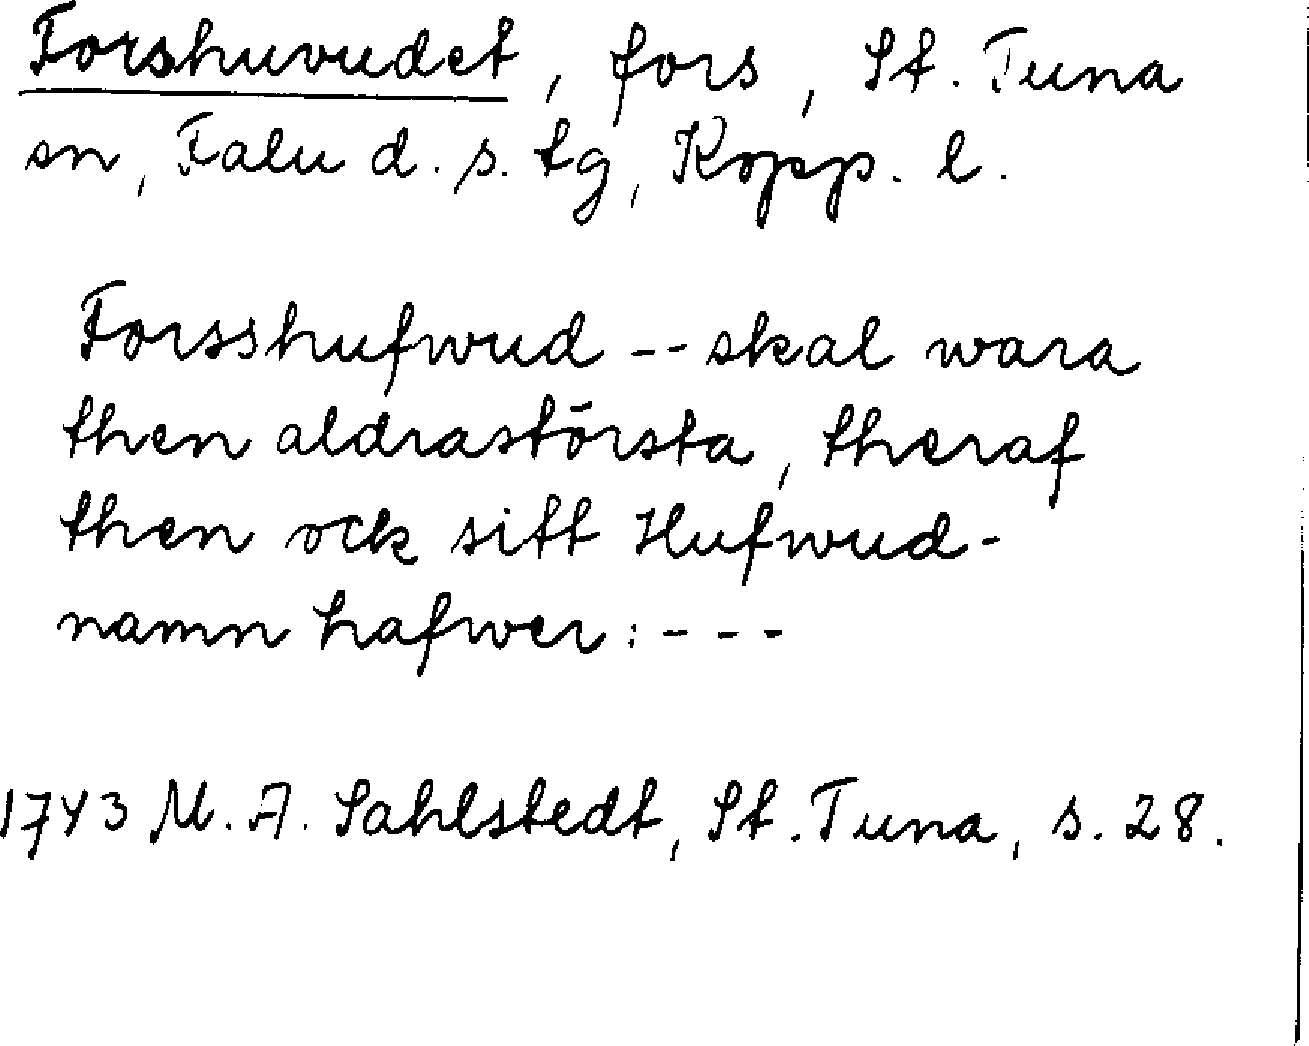 Forshuvudet, fors, St. Tuna
sn, Falu d. s. tg, Kopp. l.
Forsshufwud -- skal wara
then aldrastörsta, theraf
then ock sitt Hufwud-
namn hafwer: - - -
1743 M. A. Sahlstedt, St. Tuna, s. 28.